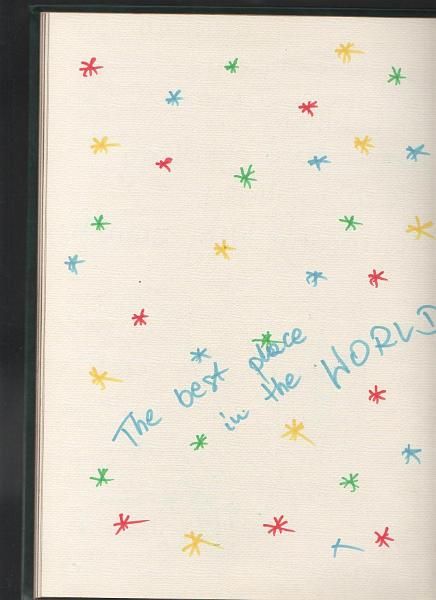 The best place
in the WORLD